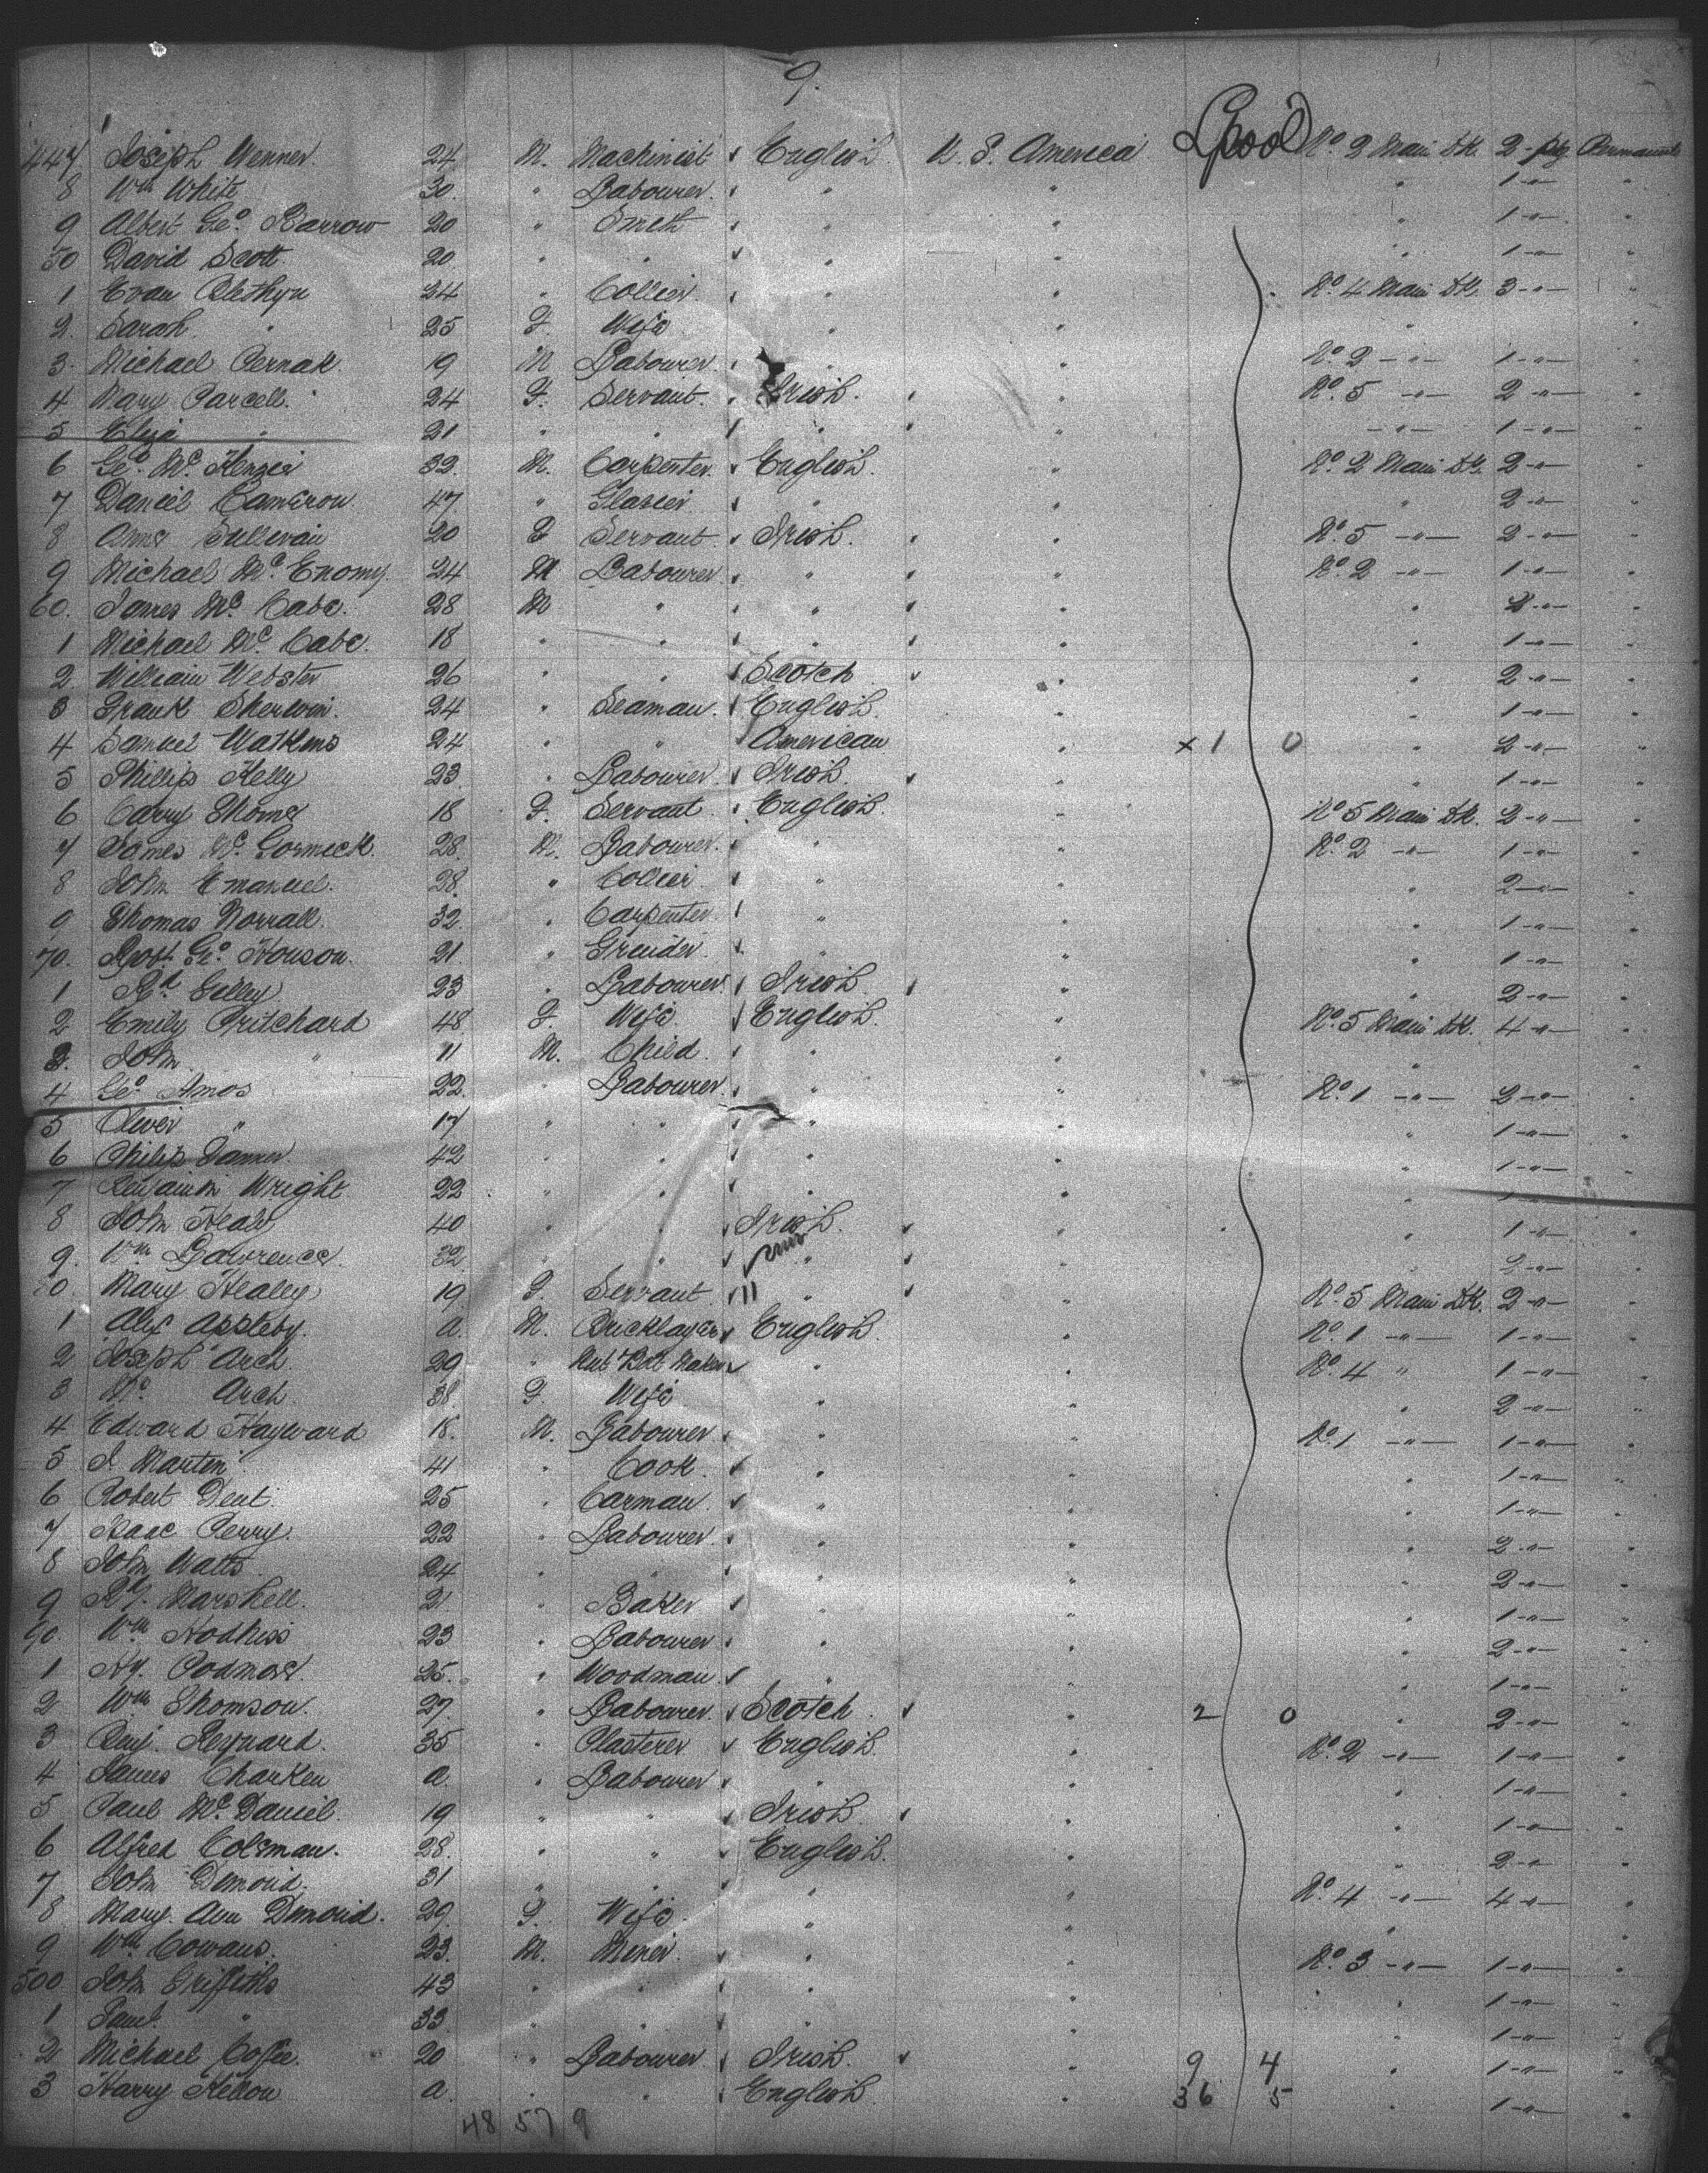 9.
L'pool
447 Joseph Wenner 24 M. Machinist English U. S. America No. 2 Main Dk. 2 - pkg Permanent
8 Wm White 30 " Labourer " " " 1 - " - "
9 Albert Geo. Barrow 20 " Smith " " " 1 - " - "
50 David Scott 20 " " " " " 1 - " - "
1 Evan Blethyn 24 " Collier " " No. 4 Main Dk. 3 - " - "
2 Sarah " 25 F. Wife " " " "
3 Michael 19 M Labourer " " No. 2 - " - 1 - " - "
4 Mary Parcell 24 F. Servant Irish " No. 5 - " - 2 - " - "
5 Eliza " 21 " " " " - " - 1 - " - "
6 Geo. McKenzie 32 M. Carpenter English " No. 2 Main Dk. 2 - " - "
7 Daniel Cameron 47 " Glazier " " " 2 - " - "
8 Ann Sullivan 20 F Servant Irish. " No. 5 - " - 2 - " - "
9 Michael Mc Enomy 24 M Labourer " " No. 2 - " - 1 - " - "
60. James Mc Cabe. 28 M " " " " 2 - " - "
1 Michael Mc Cabe. 18 " " " " " 1 - " - "
2 William Webster 26 " " Scotch " " 2 - " - "
3 Frank Sherwin. 24 " Seaman. English " " 1 - " - "
4 Samuel Watkins 24 " " American " x 1 0 " 2 - " - "
5 Phillip Kelly 23 " Labourer. Irish " " 1 - " - "
6 Carry Thomas 18 F. Servant English " No. 5 Main Dk. 2 - " - "
7 James Mc Cormick. 28 M. Labourer. " " No. 2 - " - 1 - " - "
8 John Emanuel. 28. " Collier " " " 2 - " - "
9 Thomas Norrall 32. " Carpenter " " " 1 - " - "
70. Robt Geo. Houson. 21 " Grinder " " " 1 - " - "
1 Rd Gilley 23 " Labourer Irish " " 2 - " - "
2 Emily Pritchard 48 F. Wife. English. " No. 5 Main Dk. 4 - " - "
3. John " 11 M. Child " " " "
4 Geo. Amos 22 " Labourer " " No. 1 - " - 2 - " - "
5 Oliver " 17 " " " " " 1 - " - "
6 Philip 42 " " " " " 1 - " - "
7 Benjamin Wright 22 " " " " " 1 - " - "
8 John Healy 40 " " Irish " " 1 - " - "
9. Wm Lawrence. 32 " " " " " 2 - " - "
80. Mary Healey 19 F. Servant " " No. 5 Main Dk. 2 - " - "
1 Alex Appleby. a. M. Bricklayer English " No. 1 - " - 1 - " - "
2 Joseph Arch 29 " Nut Bolt Maker " " No. 4 " 1 - " - "
3 Mrs. Arch 38 F. Wife " " " 2 - " - "
4 Edward Hayward 18. M. Labourer " " No. 1 - " - 1 - " - "
5 J. Martin 41 " Cook " " " 1 - " - "
6 Robert Dent. 25 " Carman " " " 1 - " - "
7 Isaac Perry. 22 " Labourer " " " 2 - " - "
8 John Watts 24 " " " " " 2 - " - "
9 Rd. Marshell. 21 " Baker " " " 1 - " - "
90. Wm Hodkiss 23 " Labourer " " " 2 - " - "
1 Hy. Podmore 25. " Woodman " " " 1 - " - "
2 Wm Thomson. 27 " Labourer Scotch " 2 0 " 2 - " - "
3 Benj. Reynard. 35 " Plasterer English " No. 2 - " - 1 - " - "
4 James Charken a. " Labourer " " " 1 - " - "
5 Paul Mc Daniel. 19 " " Irish " " 1 - " - "
6 Alfred Coleman. 28. " " English. " " 2 - " - "
7 John Dimond. 31 " " " " No. 4 - " - 4 - " - "
8 Mary Ann Dimond. 29. F. Wife " " " "
9 Wm Cowans. 23. M. Miner " " No. 3 - " - 1 - " - "
500 John Griffiths 43 " " " " " 1 - " - "
1 Saml. " 33 " " " " " 1 - " - "
2 Michael Coffee. 20 " Labourer Irish. " 9 4 " 1 - " - "
3 Harry Kellow a. " " English " 36 5 " 1 - " - "
48 57 9